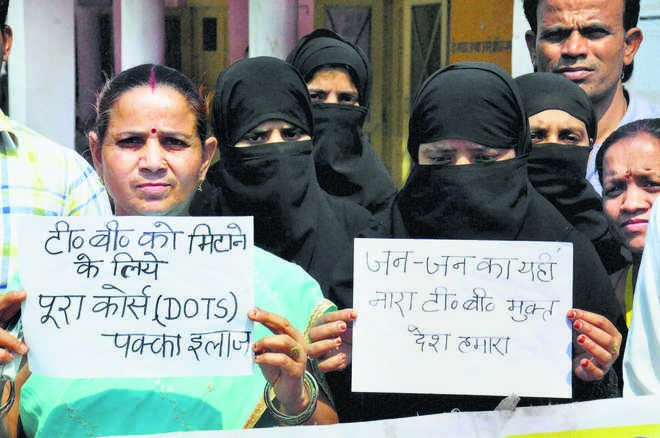 टी॰ बी॰ को मिटाने
के लिये
पूरा कोर्स (DOTS)
पक्का इलाज
जन-जन का यहीं
नारा टी॰ बी॰ मुक्त
देश हमारा